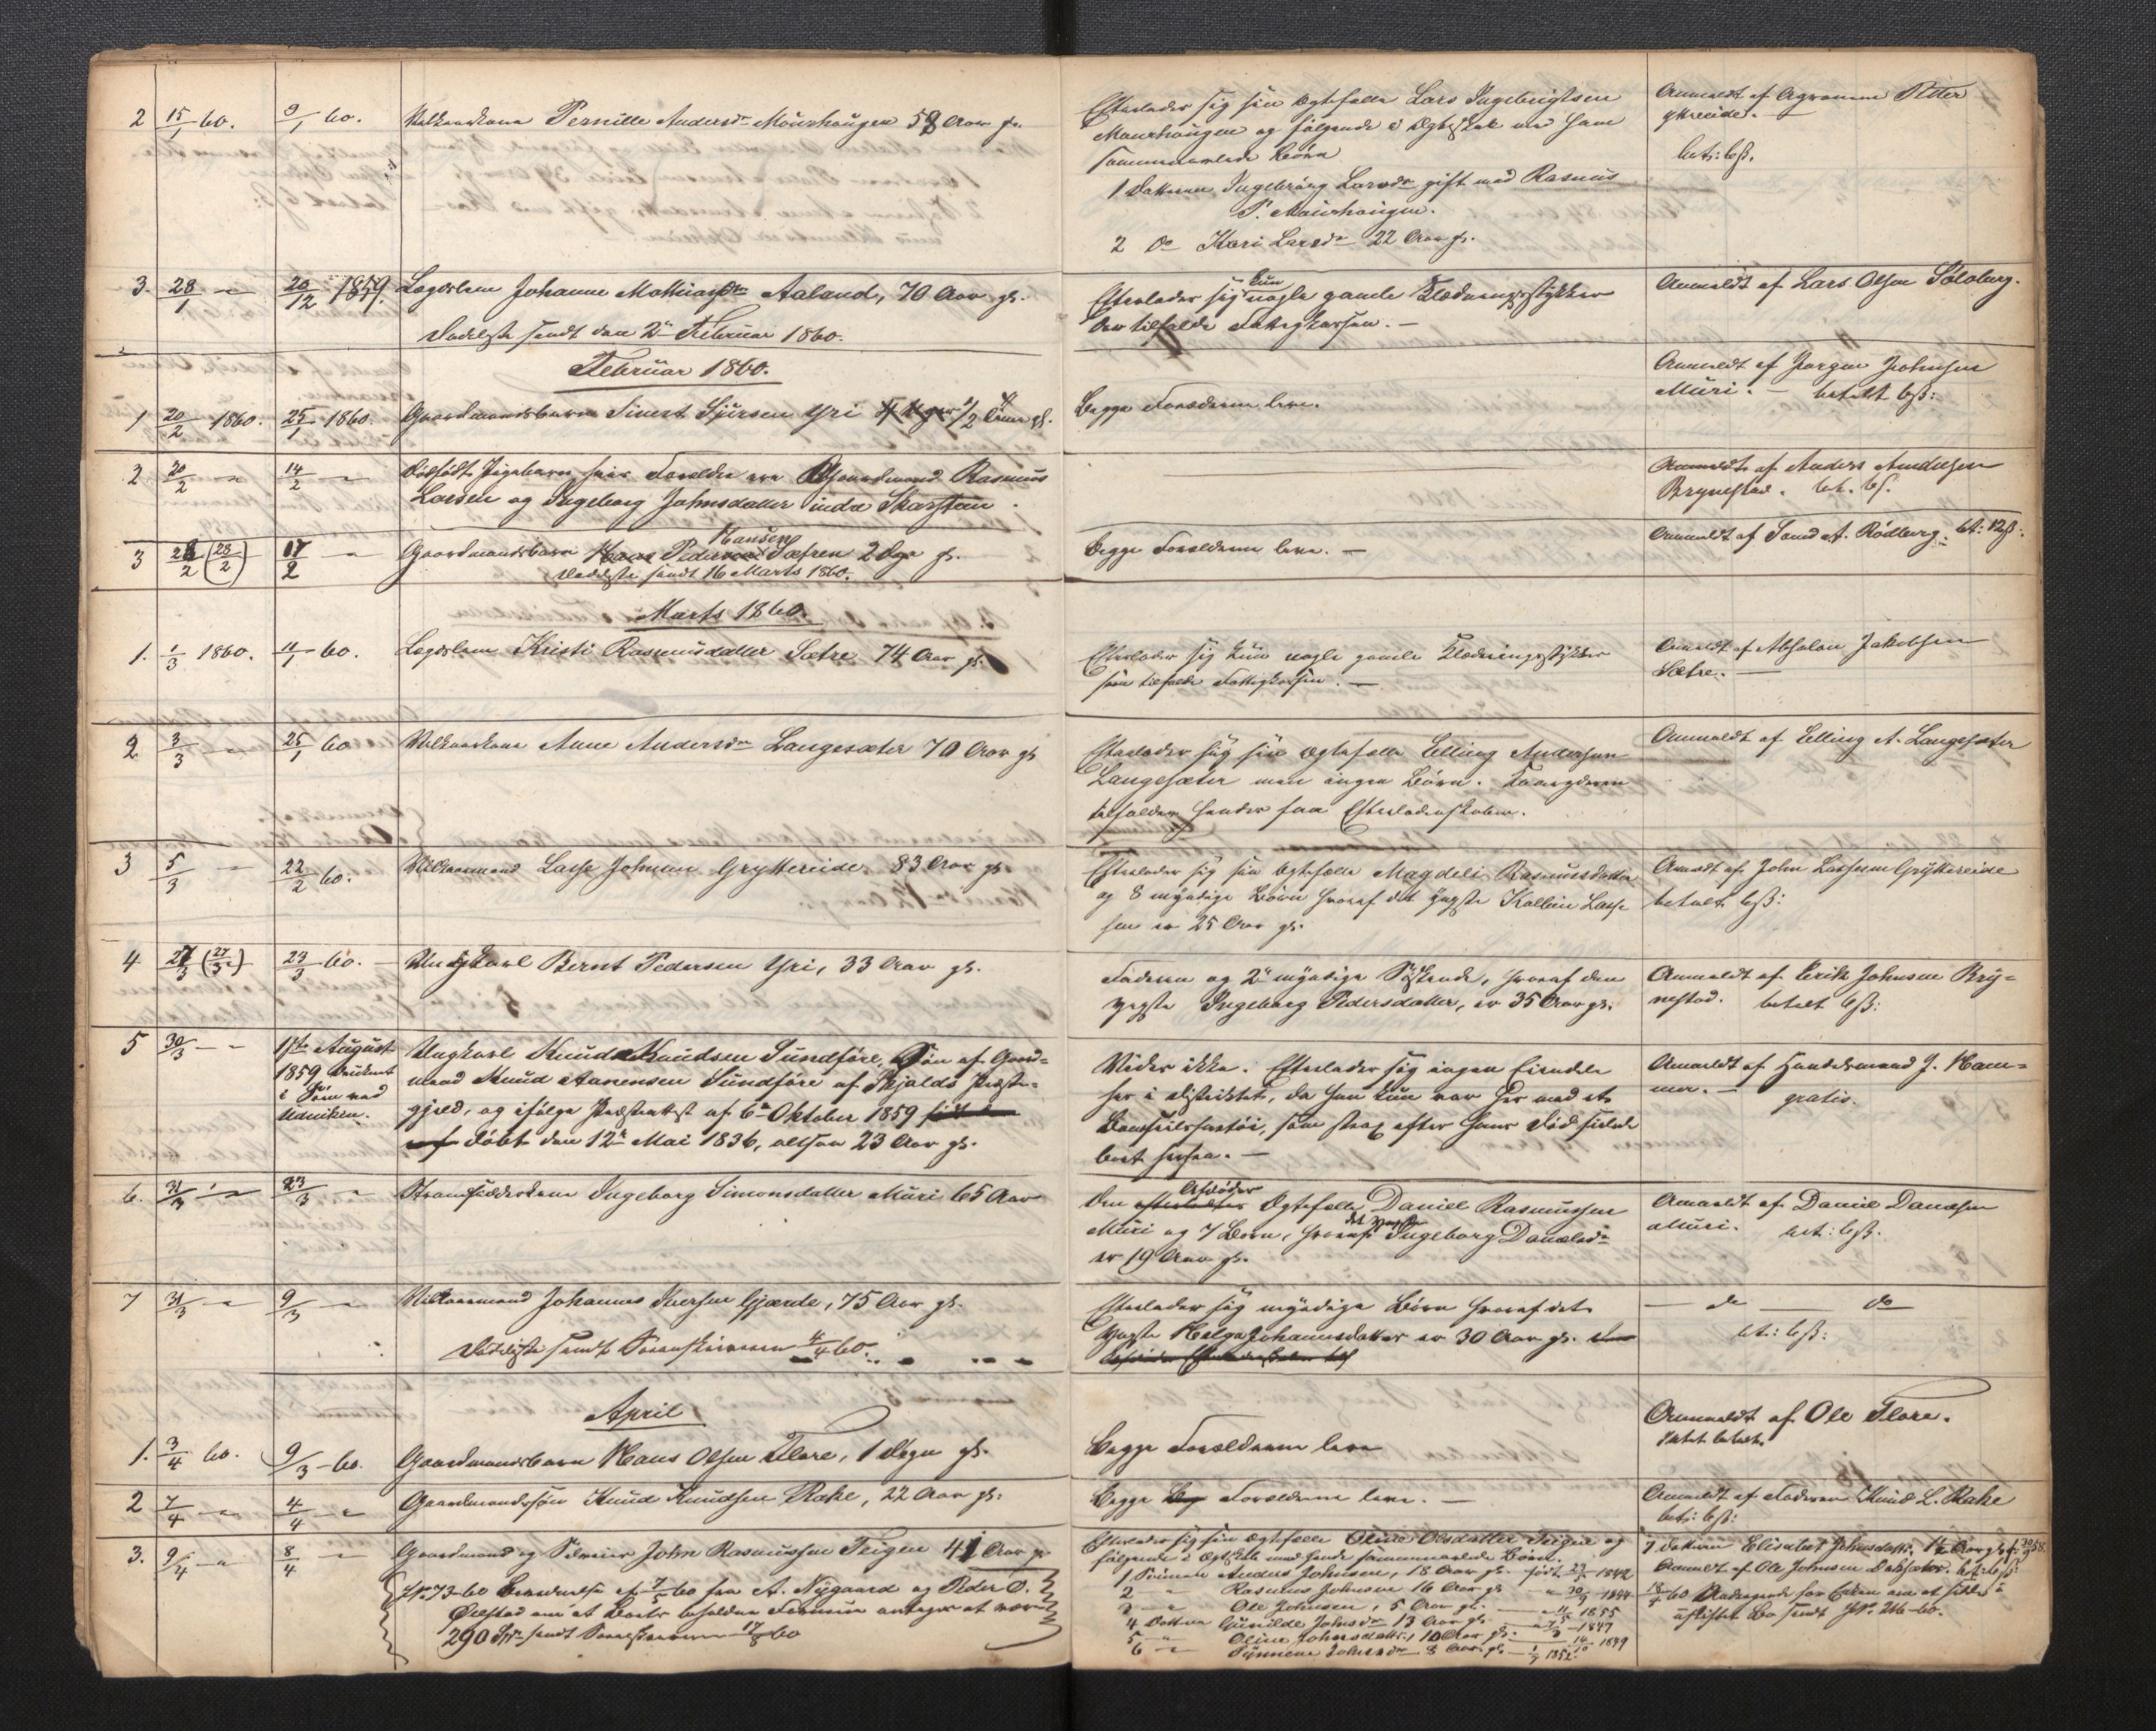 2 15/1 60. 9/1 60. Kaarkone Pernille Andersdr Mourhaugen 58 Aar gl.
Efterlader sig sin Ægtefælle Lars Ingebrigtsen
Mourhaugen og følgende i Ægteskab med ham
sammenavlede Børn
1 Datteren Ingebrørg Larsdr gift med Rasmus
P. Mourhaugen.
2 do Kari Larsdr 22 Aar gl.
Anmeldt af Peder
bet: 6ß.
3. 28/1 — 20/12 1859. Lægdslem Johanne Mathiasdr Aaland, 70 Aar gl.
Dødsliste sendt den 2den Februar 1860.
Efterlader sig kun nogle gamle Klædningsstykker
der tilfalde Fattigkassen. —
Anmeldt af Lars Olsen
Februar 1860.
1 20/2 1860. 25/1 1860. Gaardmandsbarn Sivert Sjursen Yri 1/2 gl.
Begge Forældrene leve.
Anmeldt af Jørgen Johnsen
Muri. — betalt 6ß:
2 20/2 — 14/2 — Dødfødt Pigebarn hvis Forældre ere Gaardmand Rasmus
Larsen og Ingeborg Johnsdatter indre Skarsteen.
Anmeldt af Anders Andersen
Brynestad. bet. 6ß.
3 28/2 (28/2) 17/2 — Gaardmandsbarn Hans Pedersen Hansen Sætren 2 Dage gl.
Dødsliste sendt 16 Marts 1860.
Begge Forældrene leve. —
Anmeldt af A. Rødberg. bet: 12ß:
Marts 1860.
1. 1/3 1860. 11/1 60. Lægdslem Kristi Rasmusdatter Sætre 74 Aar gl.
Efterlader sig kun nogle gamle Klædningsstykker
som tilfalde Fattigkassen. —
Anmeldt af Absalon Jakobsen
Sætre. —
2 3/3 — 25/1 60 Kaarkone Anne Andersdr Langesæter 70 Aar gl
Efterlader sig sin Ægtefælle Elling Andersen
Langesæter men ingen Børn.
tilfalder hendes faa Efterladenskaber.
Anmeldt af Elling A. Langesæter
3 5/3 — 22/2 60. Vilkaarsmand Lasse Johnsen Gryttereide 83 Aar gl
Efterlader sig sin Ægtefælle Magdeli Rasmusdatter
og 8 myndige Børn hvoraf det yngste Kolbein Lasse
sen er 25 Aar gl.
Anmeldt af John Lassesen Gryttereide
betalt 6ß:
4 27/3 (27/3) 23/3 60. — Ungkarl Bernt Pedersen Yri, 33 Aar gl.
Faderen og 2 myndige Søskende, hvoraf den
yngste Ingeborg Pedersdatter, er 35 Aar gl.
Anmeldt af Erik Johnsen Bry=
nestad. betalt 6ß:
5 30/3 — 1ste August
1859 druknet
i Søen ved
Ungkarl Knud Knudsen Sundføre, Søn af Gaard=
mand Knud Aanensen Sundføre af Skjolds Præste=
gjeld, og ifølge Præsteattest af 6te Oktober 1859
døbt den 12te Mai 1836, altsaa 23 Aar gl.
Vides ikke. Efterlader sig ingen Eiendele
her i Distriktet, da han kun var her med et
som strax efter hans Død seilede
bort herfra. —
Anmeldt af Handelsmand J. Ham=
mer. — gratis.
6. 31/3 — 23/3 — Ingeborg Simonsdatter Muri 65 Aar
Den Afdødes Ægtefælle Daniel Rasmussen
Muri og 7 Børn, hvoraf det yngste Ingeborg Danielsdr
er 19 Aar gl.
Anmeldt af Daniel Danielsen
Muri. bet: 6ß.
7 31/3 — 9/3 — Vilkaarsmand Johannes Iversen Gjærde, 75 Aar gl.
Dødsliste sendt Sorenskriveren 4/4 60.
Efterlader sig myndige Børn hvoraf det
yngste Helga Johannesdatter er 30 Aar gl.
— do — do
bet: 6ß:
April
1. 3/4 60. 9/3 60. Gaardmandsbarn Hans Olsen Flore, 1 Døgn gl.
Begge Forældrene leve
Anmeldt af Ole Flore.
betalt.
2 7/4 — 4/4 — Gaardmandssøn Knud Knudsen Rake, 22 Aar gl:
Begge Forældrene leve. —
Anmeldt af Faderen Knud L. Rake
bet: 6ß:
3. 9/4 — 8/4 — Gaardmand og John Rasmussen Teigen 41 Aar gl
JNo 73-60 af 7/5 60 fra A. Nygaard og Peder O.
Ølstad om at Boets beholdne Formue antages at være
290 Spd. sendt Sorenskriveren 17/8 60
Efterlader sig sin Ægtefælle Oline Olsdatter Teigen og
følgende i Ægteskab med hende sammenavlede Børn.
1 Sønnen Anders Johnsen, 18 Aar gl. født 1842
2 — Rasmus Johnsen 16 Aar gl 1844
3 — Ole Johnsen, 5 Aar gl. 1855
4 Datteren Gunilde Johnsdr 13 Aar gl. 1847
5 — Oline Johnsdatter, 10 Aar gl. 14/10 1849
6 — Synneve Johnsdr 8 Aar gl. 1852
7 Datteren Elisabet Johnsdatter, 1 1/2 Aar gl. 58.
Anmeldt af Ole Johnsen bet: 6ß:
18/4 60 Andragende fra Enken om at sidde i
uskiftet Bo sendt JNo. 216-60.